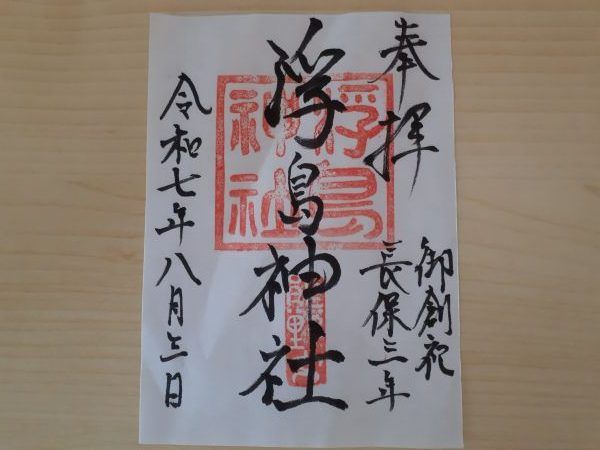 奉拝
御創祀
長保三年
浮島神社
浮島
神社
令和七年八月三日